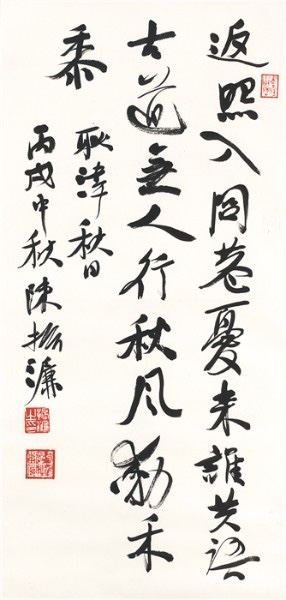 返照入閭巷憂来誰共語
古道無人行秋風動禾
黍
耿湋秋日
丙戌中秋陳振濂